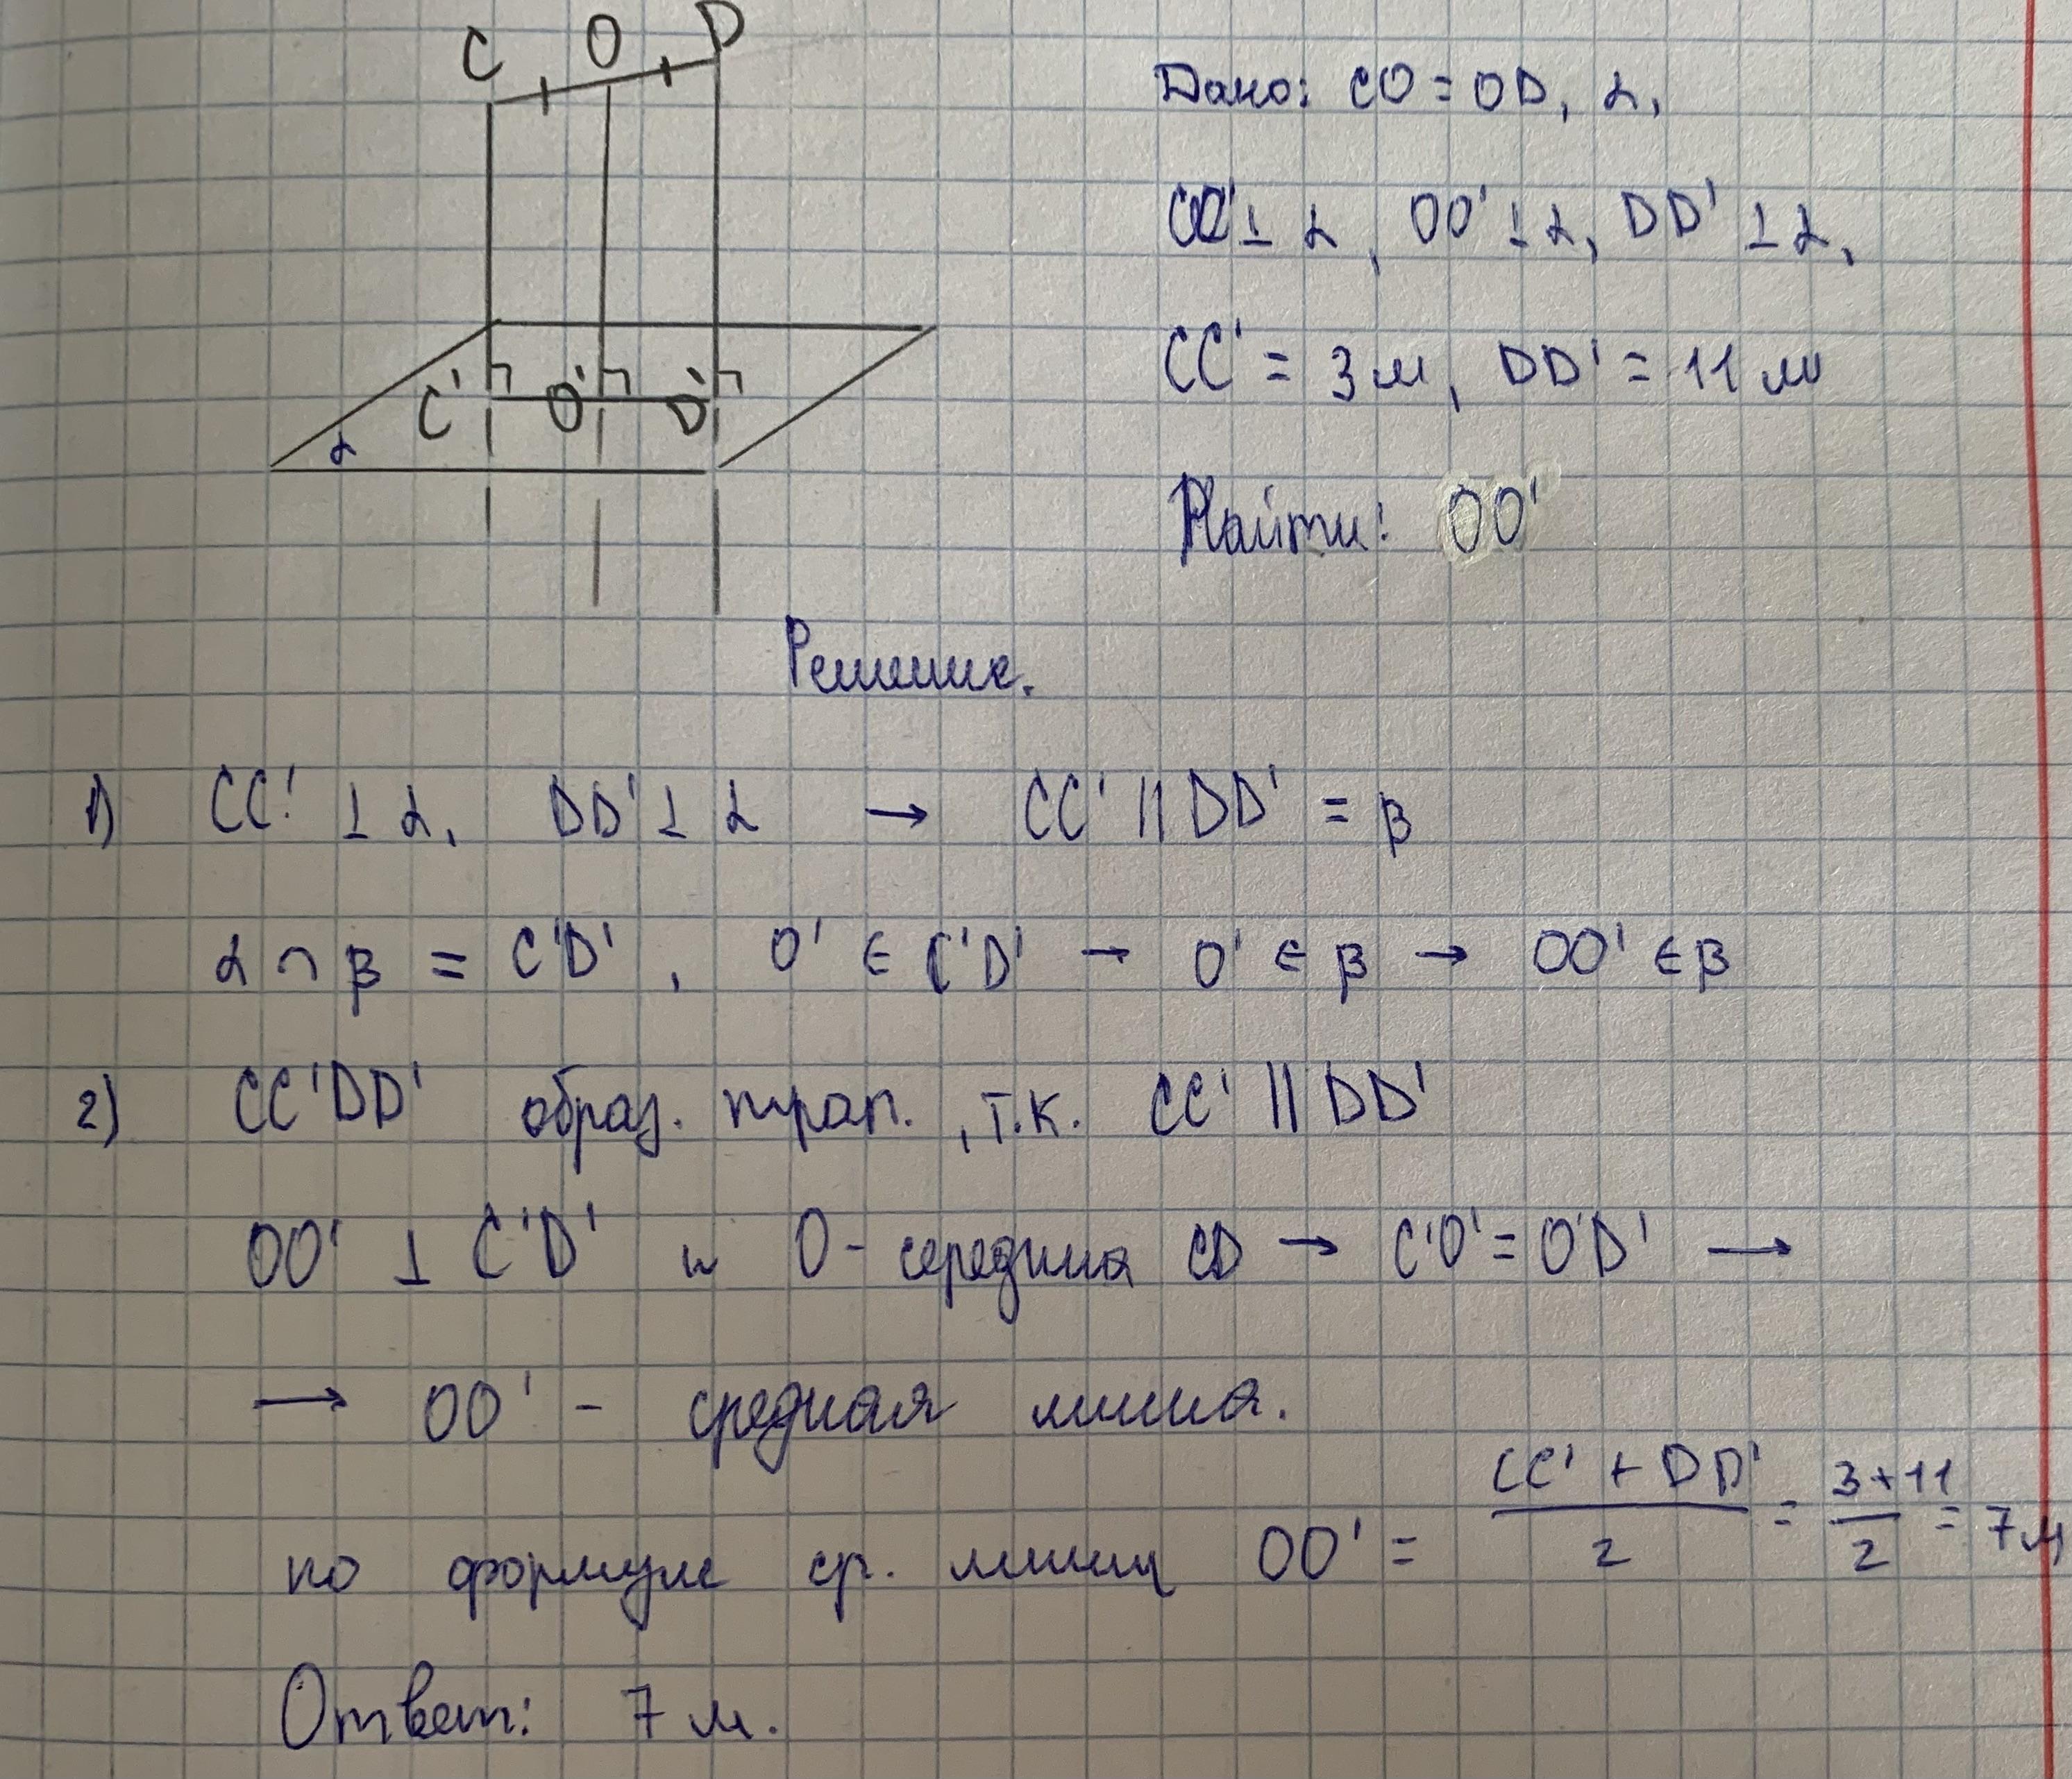 C O D
C' O' D'
α
Дано: CO = OD, α,
CC' ⊥ α, OO' ⊥ α, DD' ⊥ α,
CC' = 3 м, DD' = 11 м
Найти: OO'
Решение.
1) CC' ⊥ α, DD' ⊥ α → CC' || DD' = β
α ∩ β = C'D', O' ∈ C'D' → O' ∈ β → OO' ∈ β
2) CC'DD' образ. трап., т.к. CC' || DD'
OO' ⊥ C'D' и O - середина CD → C'O' = O'D' →
→ OO' - средняя линия.
по формуле ср. линии OO' = (CC' + DD')/2 = (3+11)/2 = 7 м
Ответ: 7 м.